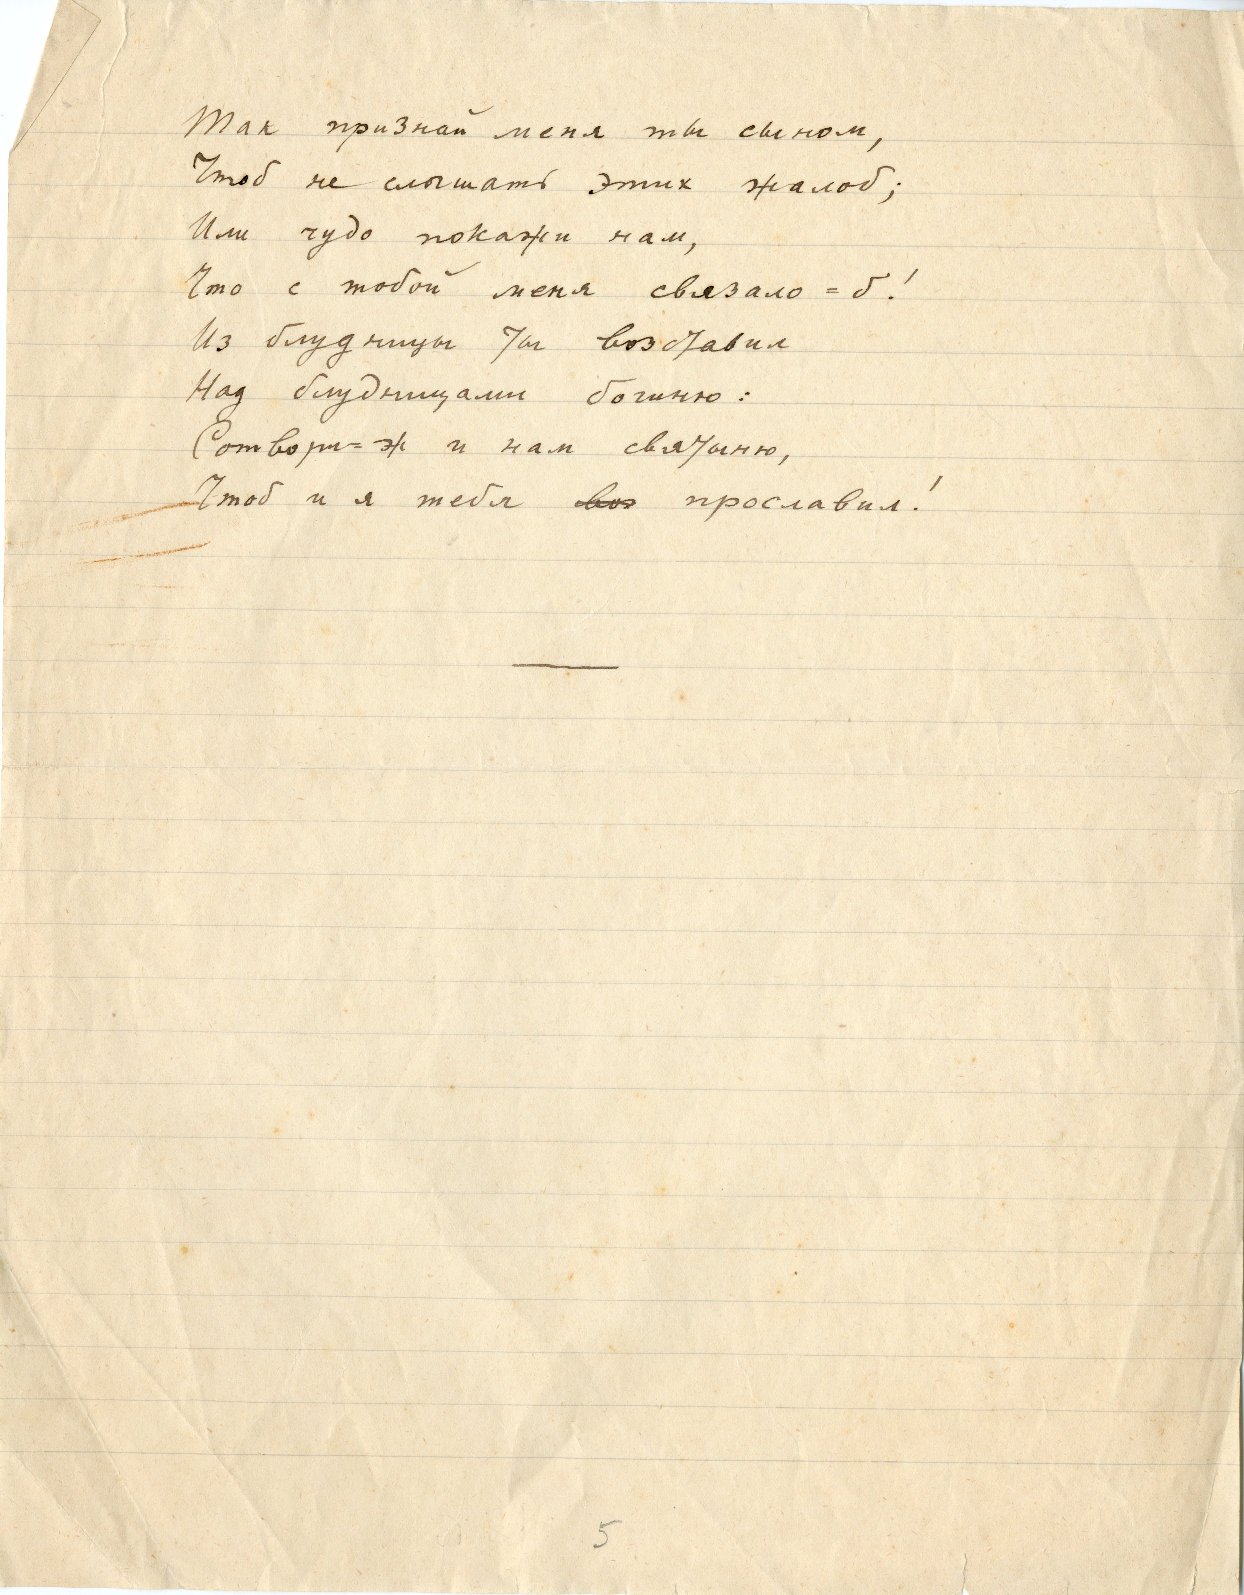 Так признай меня ты сыном,
Чтоб не слышать этих жалоб;
Или чудо покажи нам,
Что с тобой меня связало=б!
Из блудницы ты возставил
Над блудницами богиню:
Сотвори=ж и нам святыню,
Чтоб и я тебя воз прославил!
5